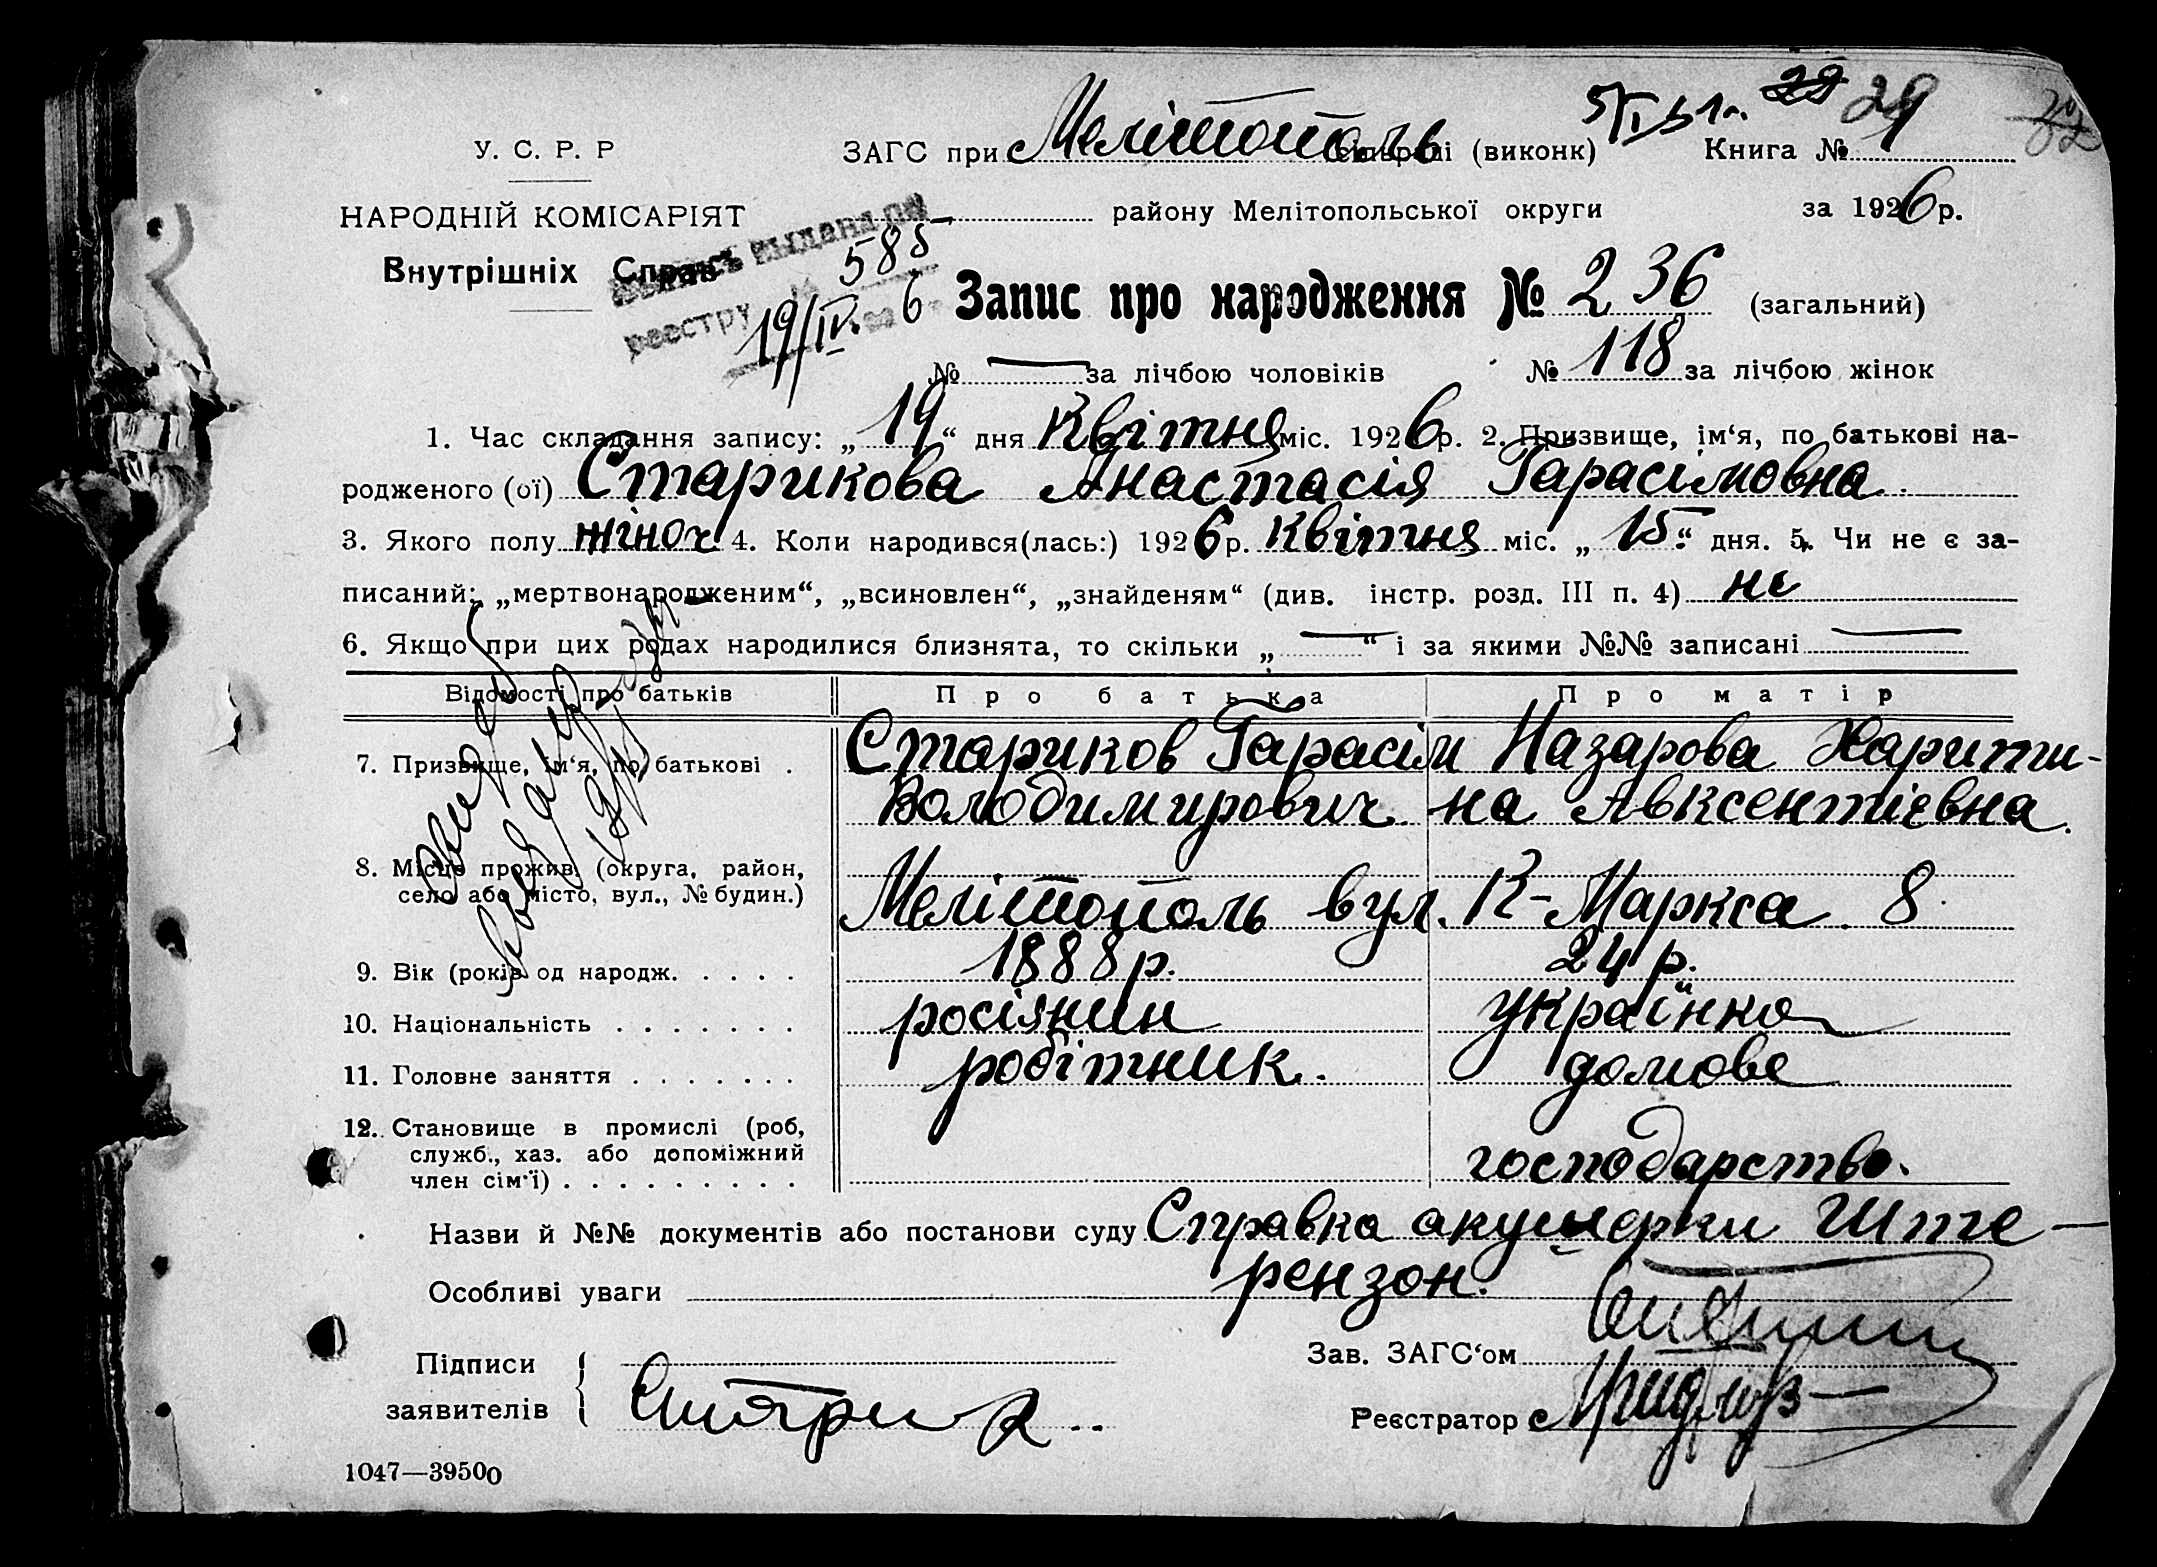 У. С. Р. Р
ЗАГС при Мелітополь сільраді (виконк)
Книга № 29
НАРОДНІЙ КОМІСАРІЯТ
району Мелітопольської округи
за 1926 р.
Внутрішніх Справ
выдана по
реестру 585
19/IV 6
Запис про народження № 236 (загальний)
№ — за лічбою чоловіків № 118 за лічбою жінок
1. Час складання запису: „19“ дня Квітня міс. 1926 р. 2. Призвище, ім‘я, по батькові на-
родженого (ої) Старикова Анастасія Гарасімовна
3. Якого полу жіноч 4. Коли народився(лась:) 1926 р. Квітня міс. „15“ дня. 5. Чи не є за-
писаний: „мертвонародженим“, „всиновлен“, „знайденям“ (див. інстр. розд. III п. 4) не
6. Якщо при цих родах народилися близнята, то скільки „—“ і за якими №№ записані —
Відомості про батьків Про батька Про матір
7. Призвище, ім‘я, по батькові . Стариков Гарасім Назарова Харити-
Володимирович на Авксентіевна.
8. Місце прожив. (округа, район,
село або місто, вул., № будин.) Мелітополь вул. К-Маркса 8
9. Вік (років од народж. . . . . 1888 р. 24 р.
10. Національність . . . . . . . росіянин українка
11. Головне заняття . . . . . . . робітник. домове
12. Становище в промислі (роб,
служб., хаз. або допоміжний
член сім‘ї) . . . . . . . . . господарство.
Назви й №№ документів або постанови суду Справка акушерки Ште-
рензон.
Особливі уваги
Підписи
заявителів
Зав. ЗАГС‘ом
Реєстратор
1047—39500